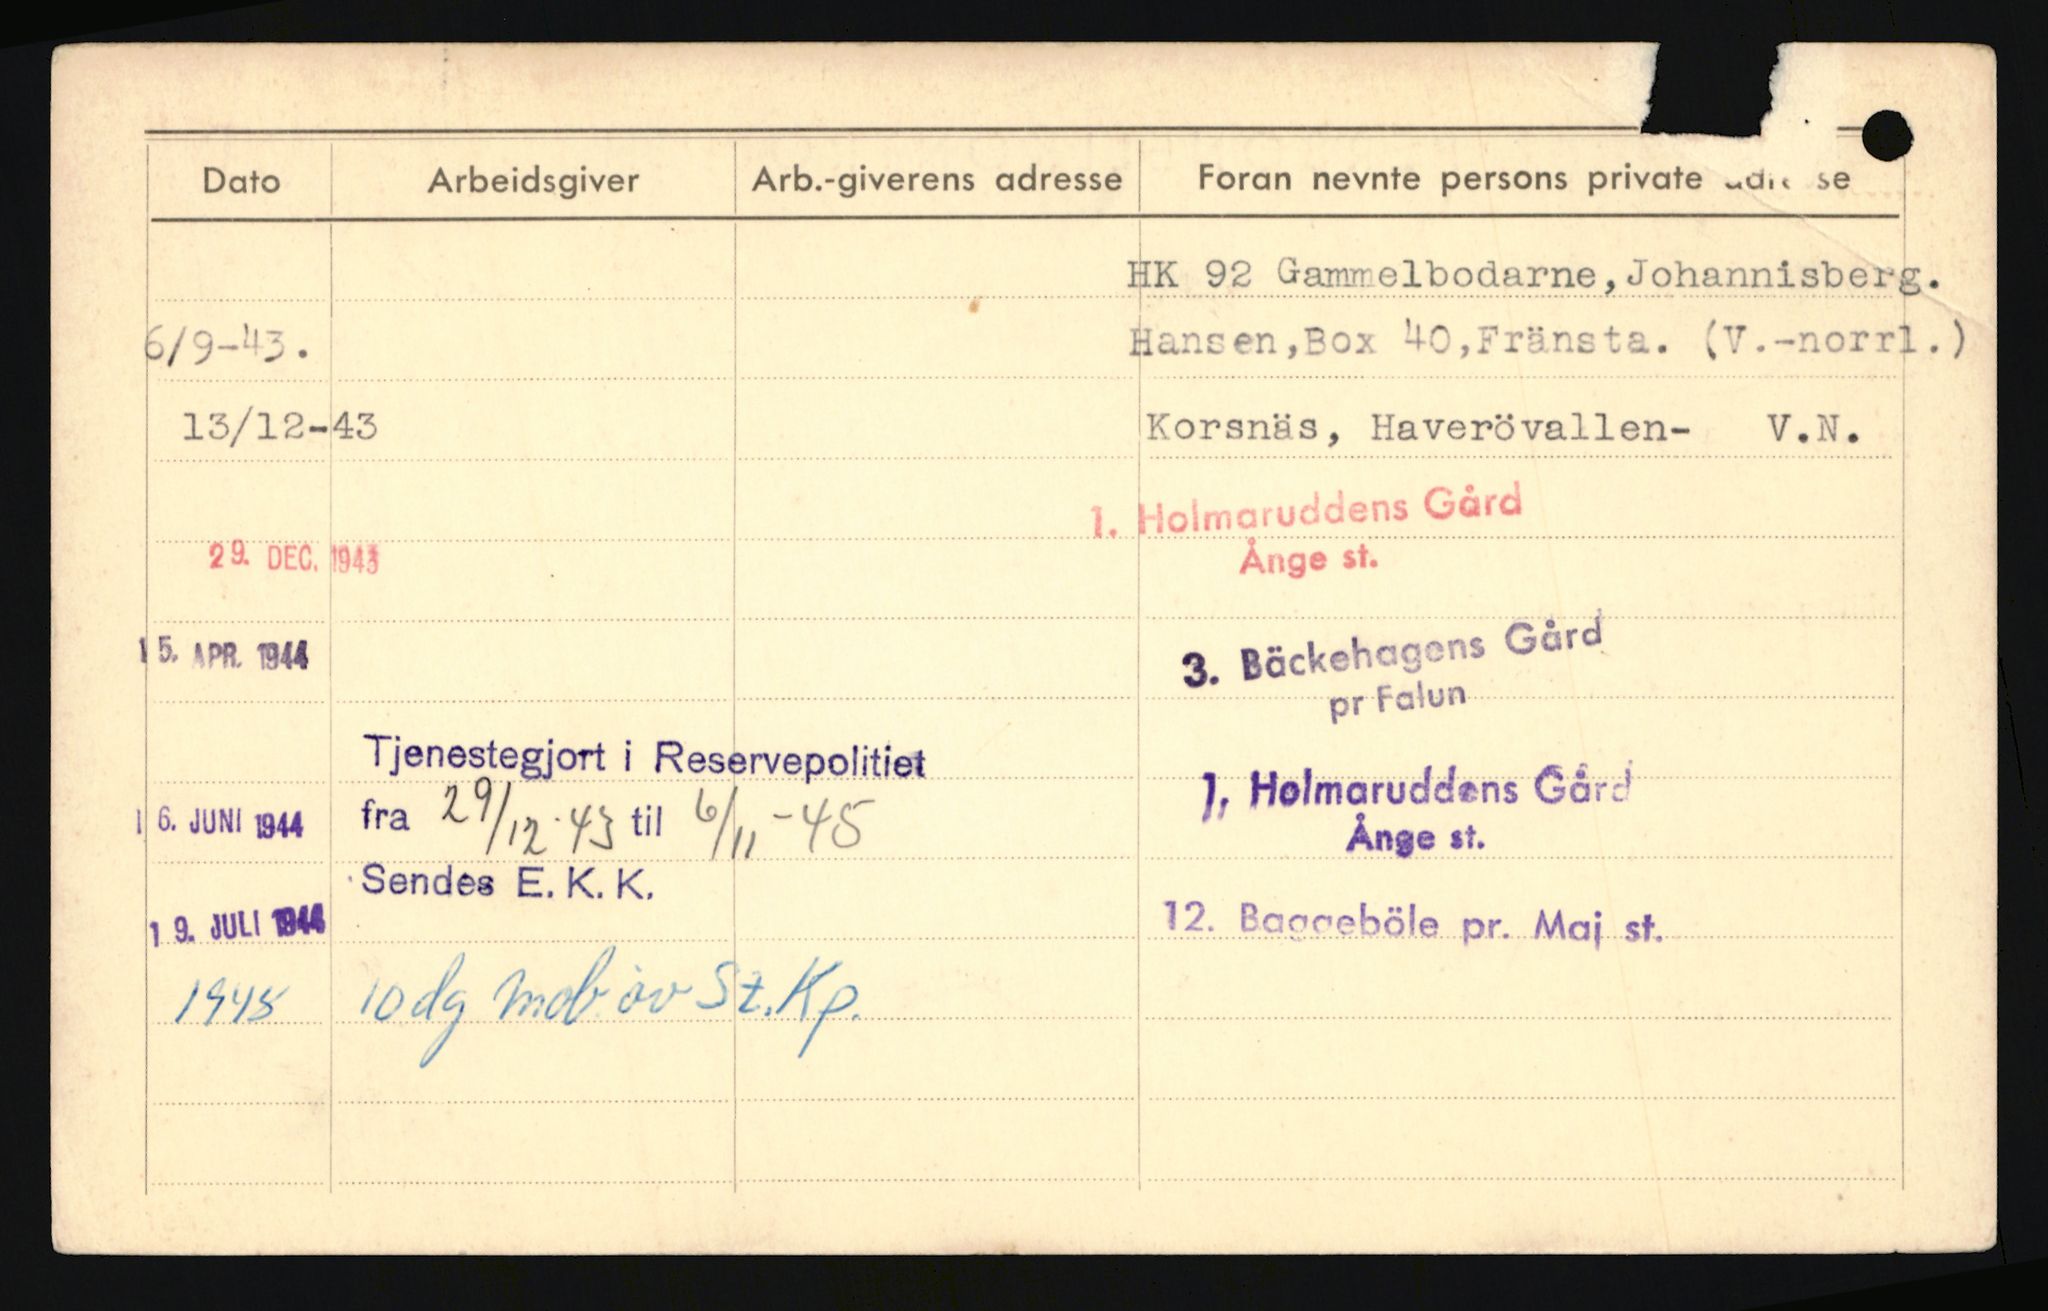 Dato Arbeidsgiver Arb.-giverens adresse Foran nevnte persons private
HK 92 Gammelbodarne,Johannisberg.
6/9-43. Hansen,Box 40,Fränsta. (V.-norrl.)
13/12-43 Korsnäs, Haverövallen- V.N.
1. Holmaruddens Gård
29. DEC. 1943 Ånge st.
15. APR. 1944 3. Bäckehagens Gård
pr Falun
Tjenestegjort i Reservepolitiet
16. JUNI 1944 fra 29/12-43 til 6/11-45 1. Holmaruddens Gård
Ånge st.
Sendes E. K. K.
19. JULI 1944 12. Baggeböle pr. Maj st.
1948 10 dg mob. øv St. Kp.